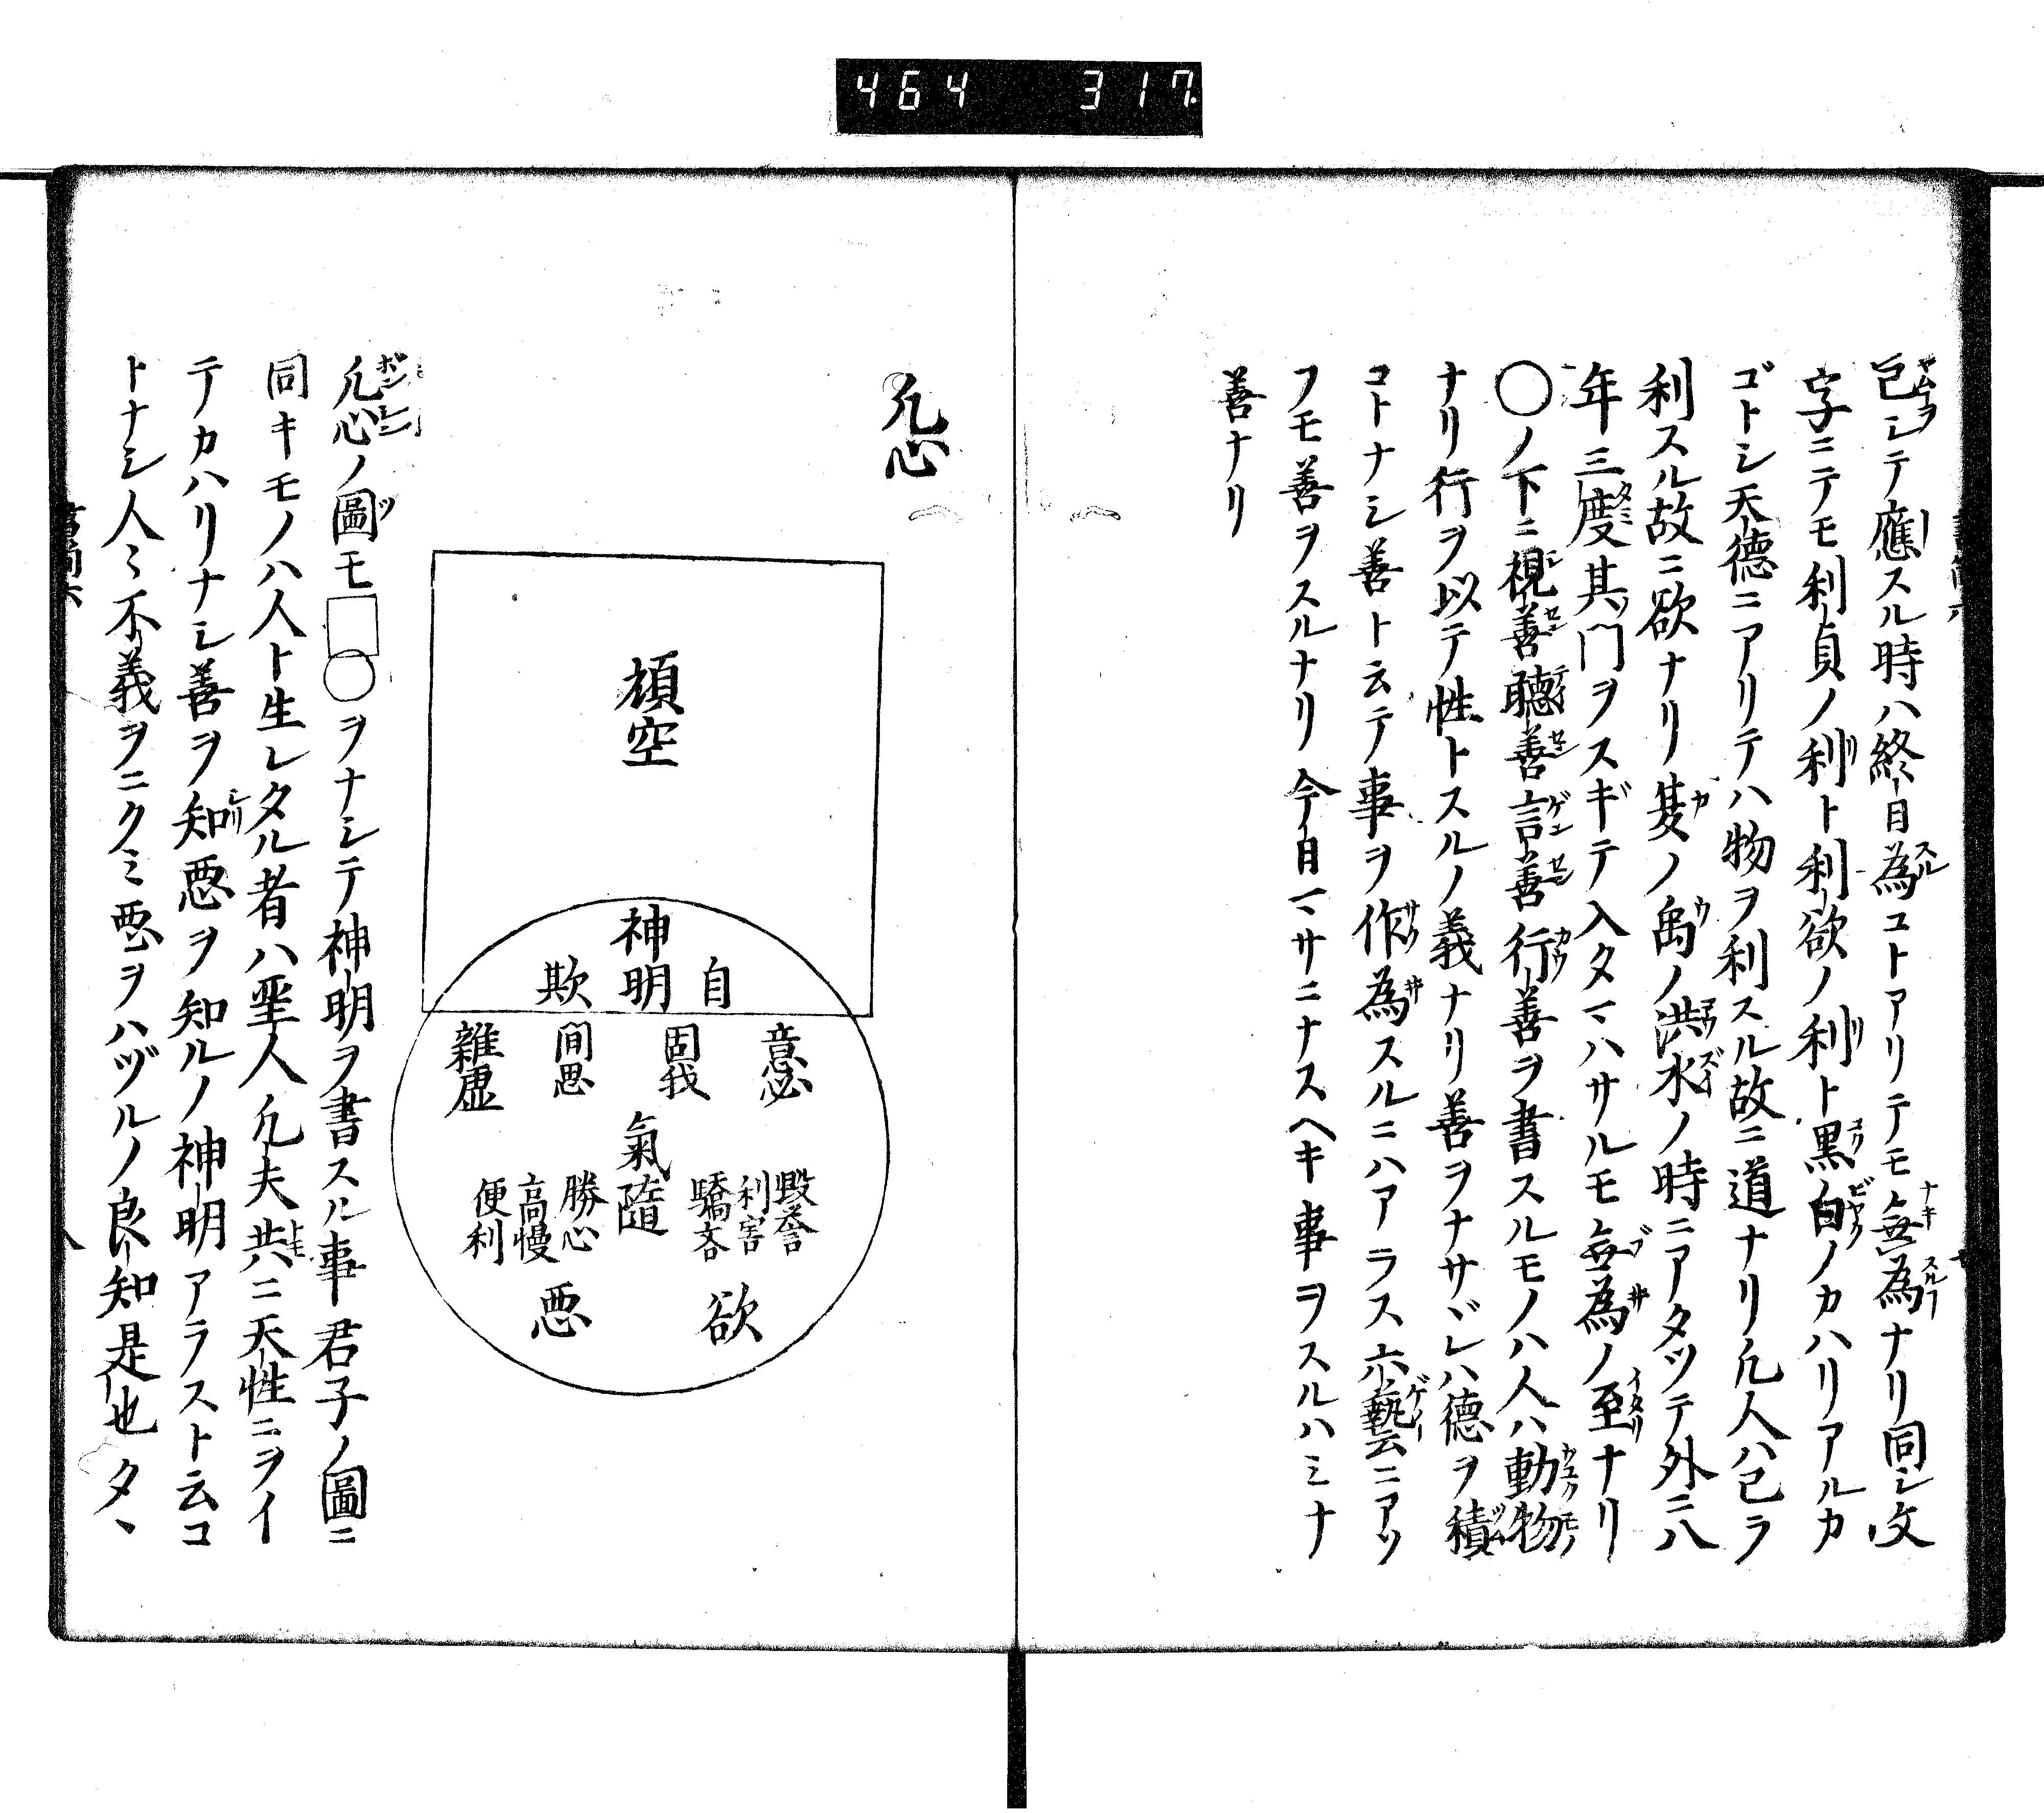 464 317
已シテ應スル時ハ終日為コトアリテモ無為ナリ同シ文
字ニテモ利貞ノ利ト利欲ノ利ト黒白ノカハリアルカ
ゴトシ天德ニアリテハ物ヲ利スル故ニ道ナリ凡人ハ已ヲ
利スル故ニ欲ナリ夏ノ禹ノ洪水ノ時ニアタツテ外ニ八
年三度其門ヲスギテ入タマハサルモ無為ノ至ナリ
○ノ下ニ視善聽善言善行善ヲ書スルモノハ人ハ動物
ナリ行ヲ以テ性トスルノ義ナリ善ヲナサヾレハ德ヲ積
コトナシ善ト云テ事ヲ作為スルニハアラス六藝ニアソ
フモ善ヲスルナリ今日マサニナスヘキ事ヲスルハミナ
善ナリ
凡心
頑空
神明
自
欺
意必
固我
間思
雜慮
氣隨
毀誉
利害
驕吝
勝心
高慢
便利
欲
悪
凡心ノ圖モ□○ヲナシテ神明ヲ書スル事君子ノ圖ニ
同キモノハ人ト生レタル者ハ聖人凡夫共ニ天性ニヲイ
テカハリナシ善ヲ知悪ヲ知ルノ神明アラスト云コ
トナシ人ミ不義ヲニクミ悪ヲハヅルノ良知是也タヽ